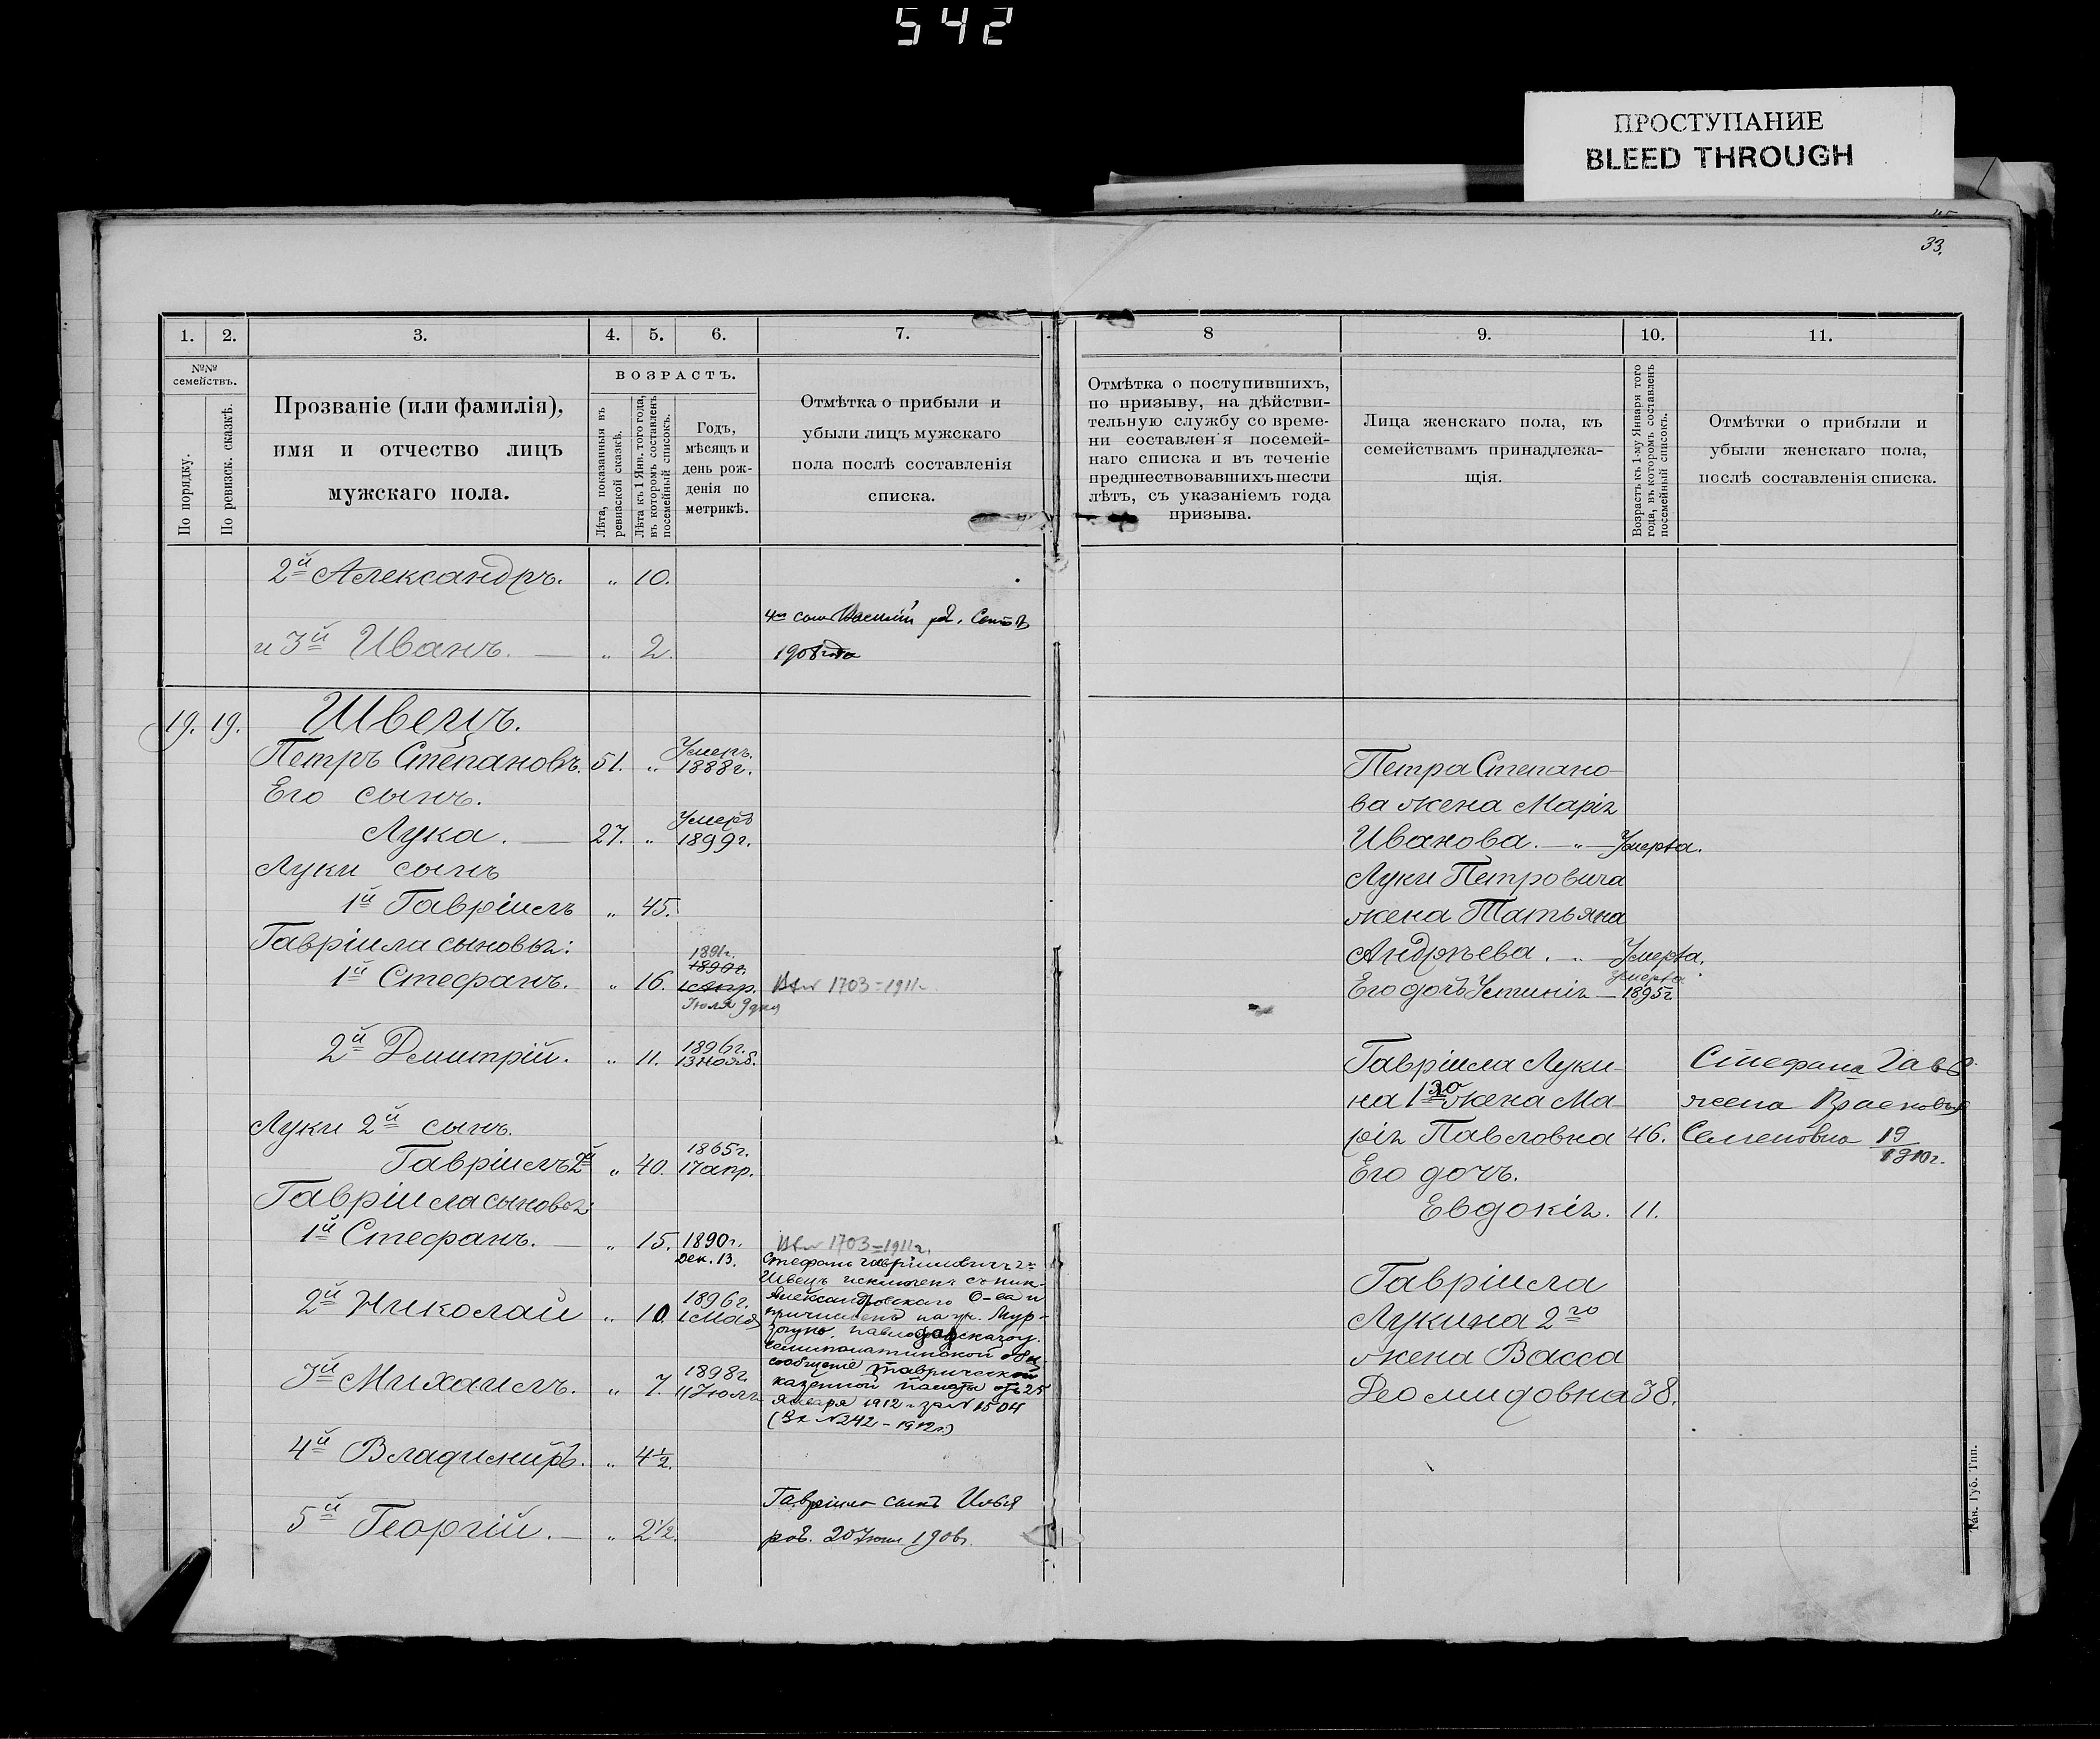 542
ПРОСТУПАНИЕ
BLEED THROUGH
33.
1.
2.
3.
4.
5.
6.
7.
8
9.
10.
11.
№№ семействъ.
По порядку.
По ревизск. сказкѣ.
Прозваніе (или фамилія),
имя и отчество лицъ
мужскаго пола.
ВОЗРАСТЪ.
Лѣта, показанныя въ
ревизской сказкѣ.
Лѣта къ 1 Янв. того года,
въ которомъ составленъ
посемейный списокъ.
Годъ,
мѣсяцъ и
день рож-
денія по
метрикѣ.
Отмѣтка о прибыли и
убыли лицъ мужскаго
пола послѣ составленія
списка.
Отмѣтка о поступившихъ,
по призыву, на дѣйстви-
тельную службу со време-
ни составленія посемей-
наго списка и въ теченіе
предшествовавшихъ шести
лѣтъ, съ указаніемъ года
призыва.
Лица женскаго пола, къ
семействамъ принадлежа-
щія.
Возрастъ къ 1-му Января того
года, въ которомъ составленъ
посемейный списокъ.
Отмѣтки о прибыли и
убыли женскаго пола,
послѣ составленія списка.
2й Александръ. " 10.
4й сынъ Василій рд.
и 3й Иванъ. — " 2.
1908 года
19. 19. Швецъ.
Петръ Степановъ. 51. " Умеръ. 1888г.
Его сынъ.
Лука. — 27. " Умеръ 1899г.
Луки сынъ
1й Гавріилъ " 45.
Гавріила сыновья:
1й Стефанъ. " 16. 1891г. 1890г. Іюля 9 дня 1703=1911г.
2й Дмитрій. " 11. 1896г. 13 нояб.
Луки 2й сынъ.
Гавріилъ 2й " 40. 1865г. 17 апр.
Гавріила сыновья:
1й Стефанъ. — " 15. 1890г. Дек. 13. 1703=1911г.
Стефанъ Гавріиловичъ
Швецъ исключенъ съ Ник-
Александровскаго О-ва и
причисленъ на уч. Мур-
Павлодарскаго у.
Семипалатинской обл
сообщеніе Таврической
казенной палаты отъ 25
Января 1912 г за № 1504
(Вх №242-1912г)
2й Николай " 10. 1896г. 1 Мая
3й Михаилъ. " 7. 1898г. 11 Іюля
4й Владиміръ. " 4½.
5й Георгій. — " 2½.
Гавріила сынъ Илья
род. 20 Іюля 190
Петра Степано-
ва жена Марія
Иванова. — " — Умерла.
Луки Петровича
жена Татьяна
Андреева. " — Умерла.
Его дочь Устинія — умерла 1895г
Гавріила Луки-
на 1го жена Ма-
рія Павловна 46.
Его дочь.
Евдокія. 11.
Гавріила
Лукина 2го
жена Васса
Деомидовна 38.
Стефана Гавр.
жена
Семеновна 19/1910г.
Тав. Губ. Тип.